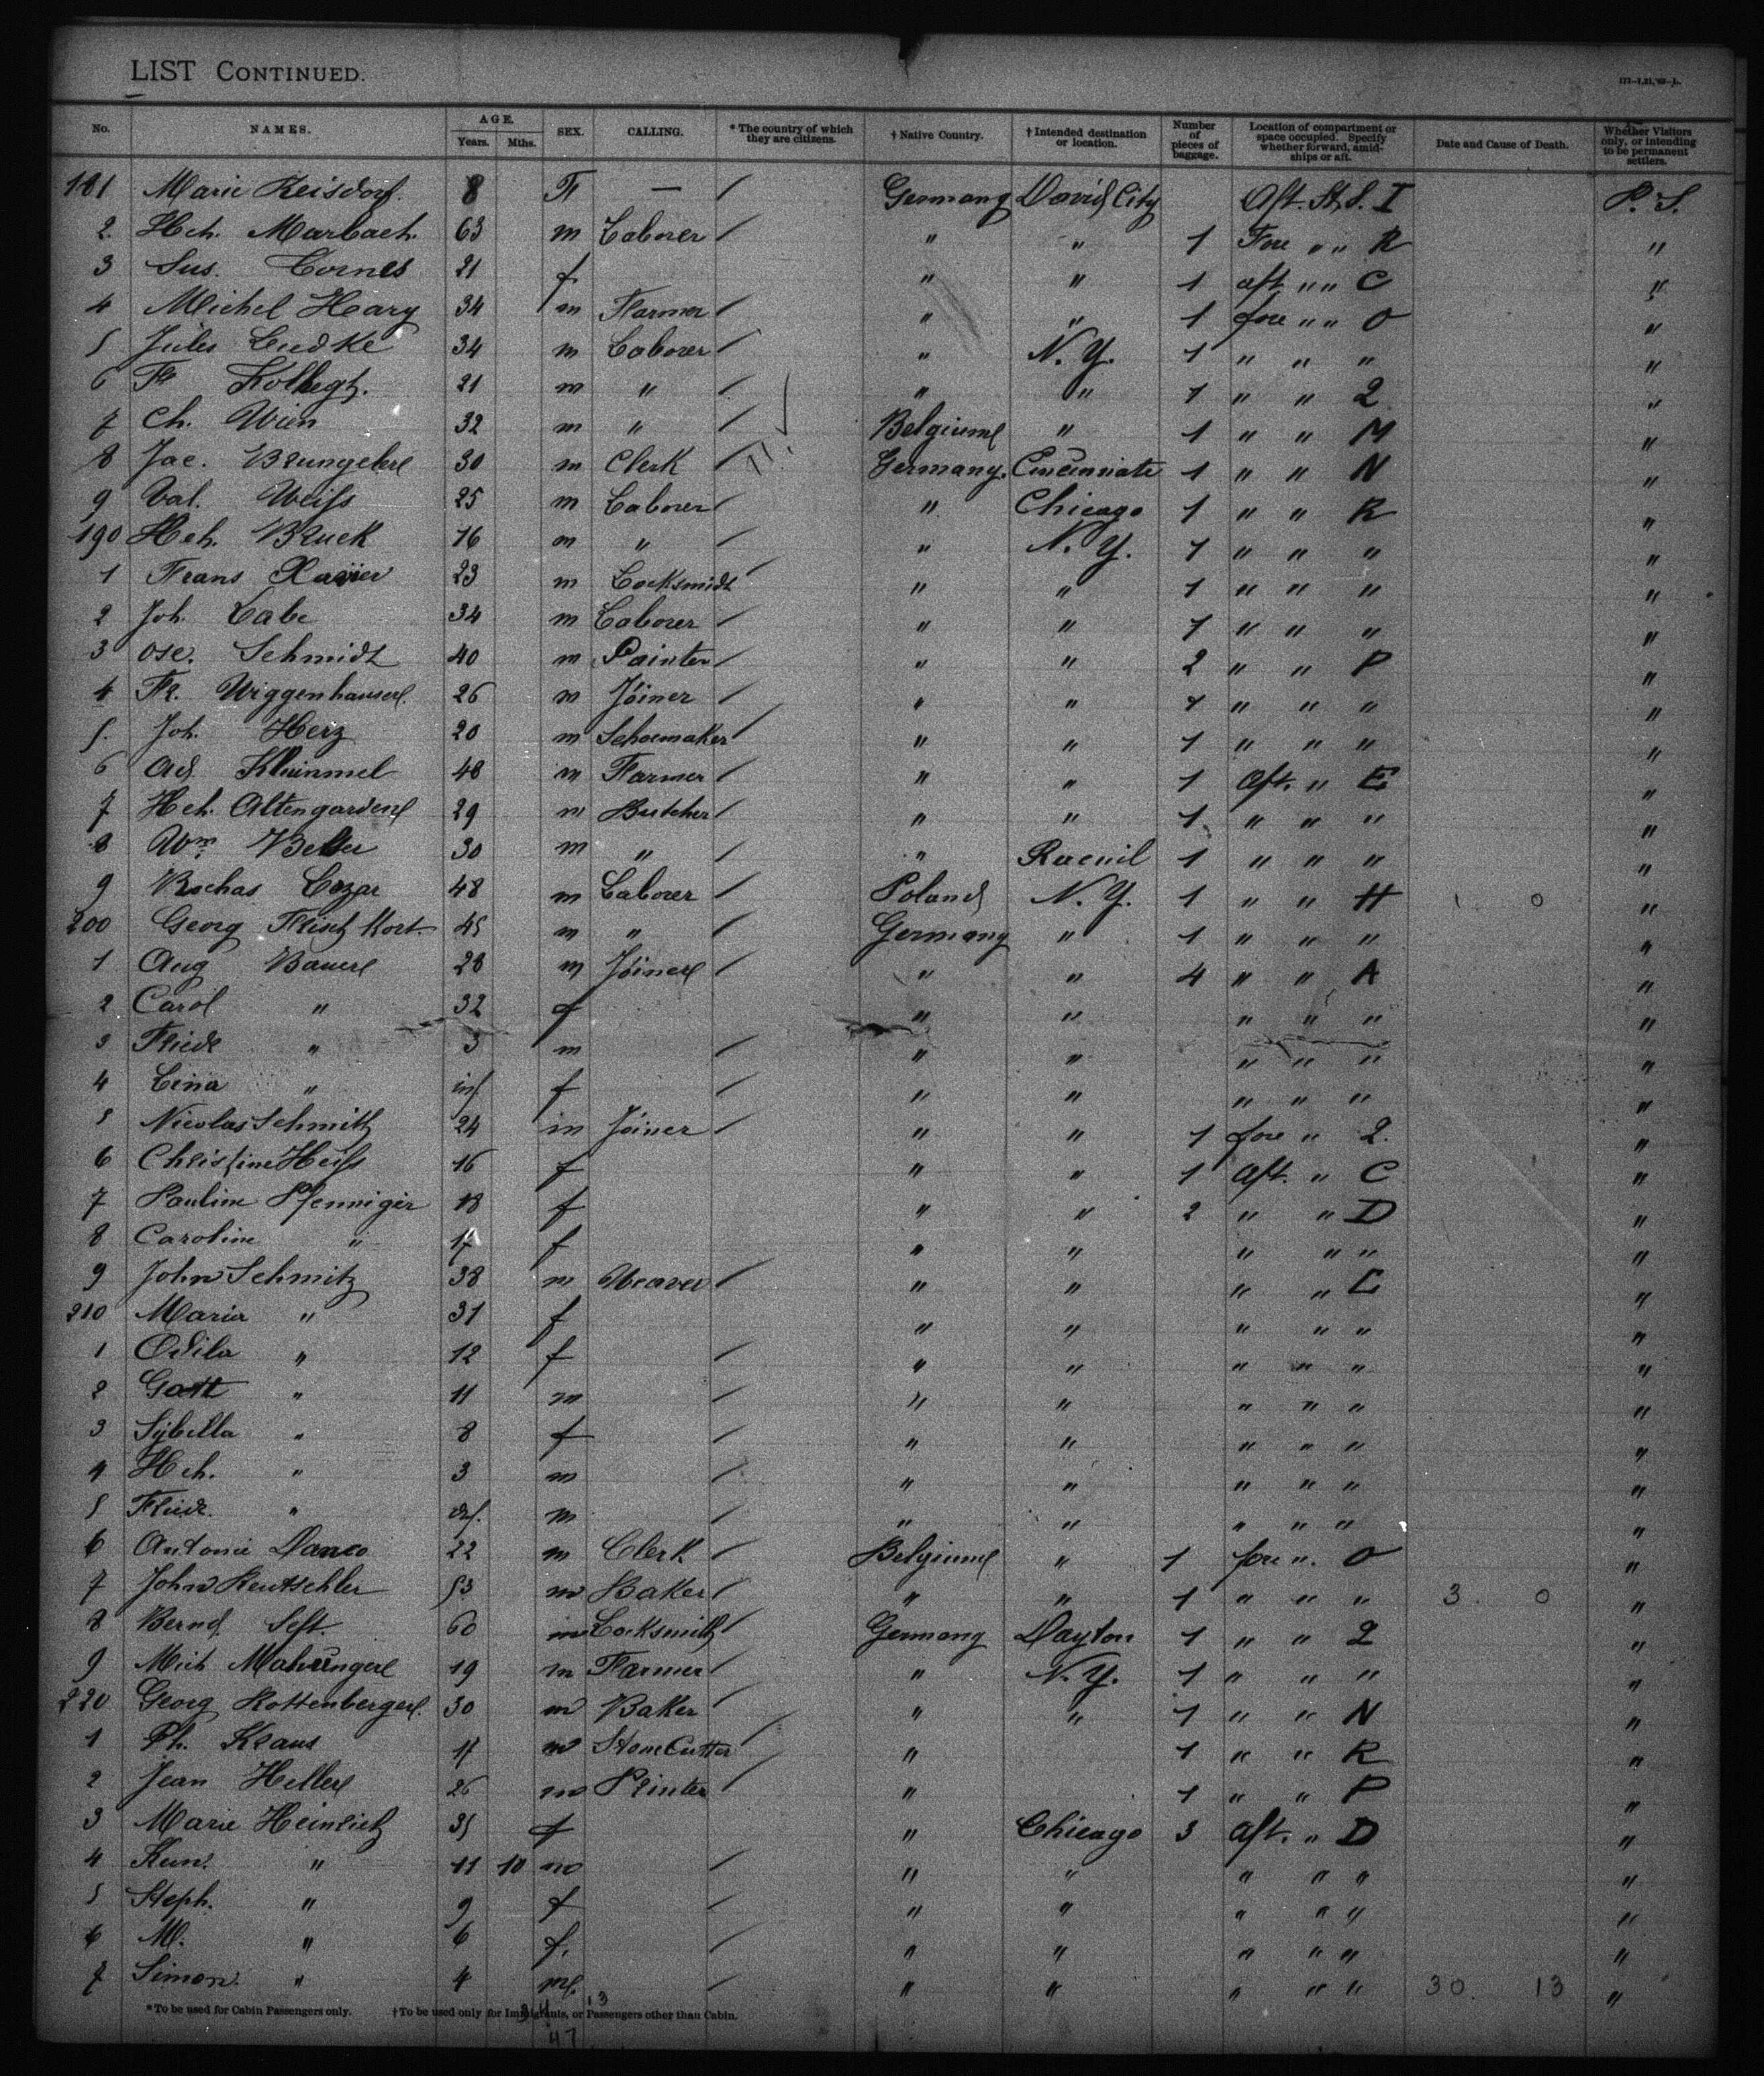 LIST CONTINUED.
No. NAMES. AGE. Years. Mths. SEX. CALLING. * The country of which they are citizens. † Native Country. † Intended destination or location. Number of pieces of baggage. Location of compartment or space occupied. Specify whether forward, amidships or aft. Date and Cause of Death. Whether Visitors only, or intending to be permanent settlers.
181 Marie Reisdorf. 8 F — / Germany David City Aft. St. S. I P. S.
2. Hch. Marbach. 63 m Laborer / " " 1 Fore " " R "
3 Sus. Cornes 21 f " " 1 aft " " C "
4 Michel Hary 34 m Farmer / " " 1 fore " " O "
5 Jules Ludke 34 m Laborer / " N. Y. 1 " " " "
6 Fr 21 m " / " " 1 " " 2 "
7 Ch. Wien 32 m " / Belgium " 1 " " M "
8 Jac. 30 m Clerk / Germany. Cincinnati 1 " " N "
9 Val. Weiss 25 m Laborer / " Chicago 1 " " R "
190 Hch. Bruck 16 m " / " N. Y. 1 " " " "
1 Frans Xavier 23 m Locksmidt / " " 1 " " " "
2 Joh. Labe 34 m Laborer / " " 1 " " " "
3 Schmidt 40 m Painter / " " 2 " " P "
4 Fr. Wiggenhauser. 26 m Joiner / " " 1 " " " "
5. Joh. Herz 20 m Schoemaker / " " 1 " " " "
6 Ad. 48 m Farmer / " " 1 Aft. " E "
7 Hch. Altengarden 29 m Butcher / " " 1 " " " "
8 Wm. 30 m " / " 1 " " " "
9 Rochas 48 m Laborer / Poland N. Y. 1 " " H 1 0 "
200 Georg 45 m " / Germany " 1 " " " "
1 Aug Bauer 28 m Joiner / " " 4 " " A "
2 Carol " 32 f " " " " " "
3 Friedr " 3 m / " " " " " "
4 Lina " inf f / " " " " " "
5 Nicolas Schmitz 24 m Joiner / " " 1 fore " 2. "
6 Christine Heiss 16 f " " 1 Aft. " C "
7 Pauline Pfenniger 18 f " " 2 " " D "
8 Caroline " 17 f " " " " " "
9 John Schmitz 38 m Weaver / " " " " C "
210 Maria " 31 f " " " " " "
1 Odila " 12 f / " " " " " "
2 " 11 m / " " " " " "
3 Sybella " 8 f / " " " " " "
4 Hch. " 3 m / " " " " " "
5 Friedr. " inf. m / " " " " " "
6 Antonie Danco 22 m Clerk / Belgium " 1 fore " O "
7 John Rentschler 53 m Baker / " " 1 " " " 3 0 "
8 Bernd. Seft. 60 m Locksmith / Germany Dayton 1 " " 2 "
9 Mich 19 m Farmer / " N. Y. 1 " " " "
220 Georg Rottenberger. 30 m Baker / " " 1 " " N "
1 Ph. Kraus 17 m Stone Cutter / " 1 " " R "
2 Jean Heller 26 m Printer / " 1 " " P "
3 Marie Heinrich 35 f " Chicago 3 Aft. " D "
4 Kun. " 11 10 m / " " " " " "
5 Steph. " 9 f / " " " " " "
6 M. " 6 f. / " " " " " "
7 Simon. " 4 m / " " " " " 30. 13 "
* To be used for Cabin Passengers only. † To be used only for Immigrants, or Passengers other than Cabin.
34 13
47